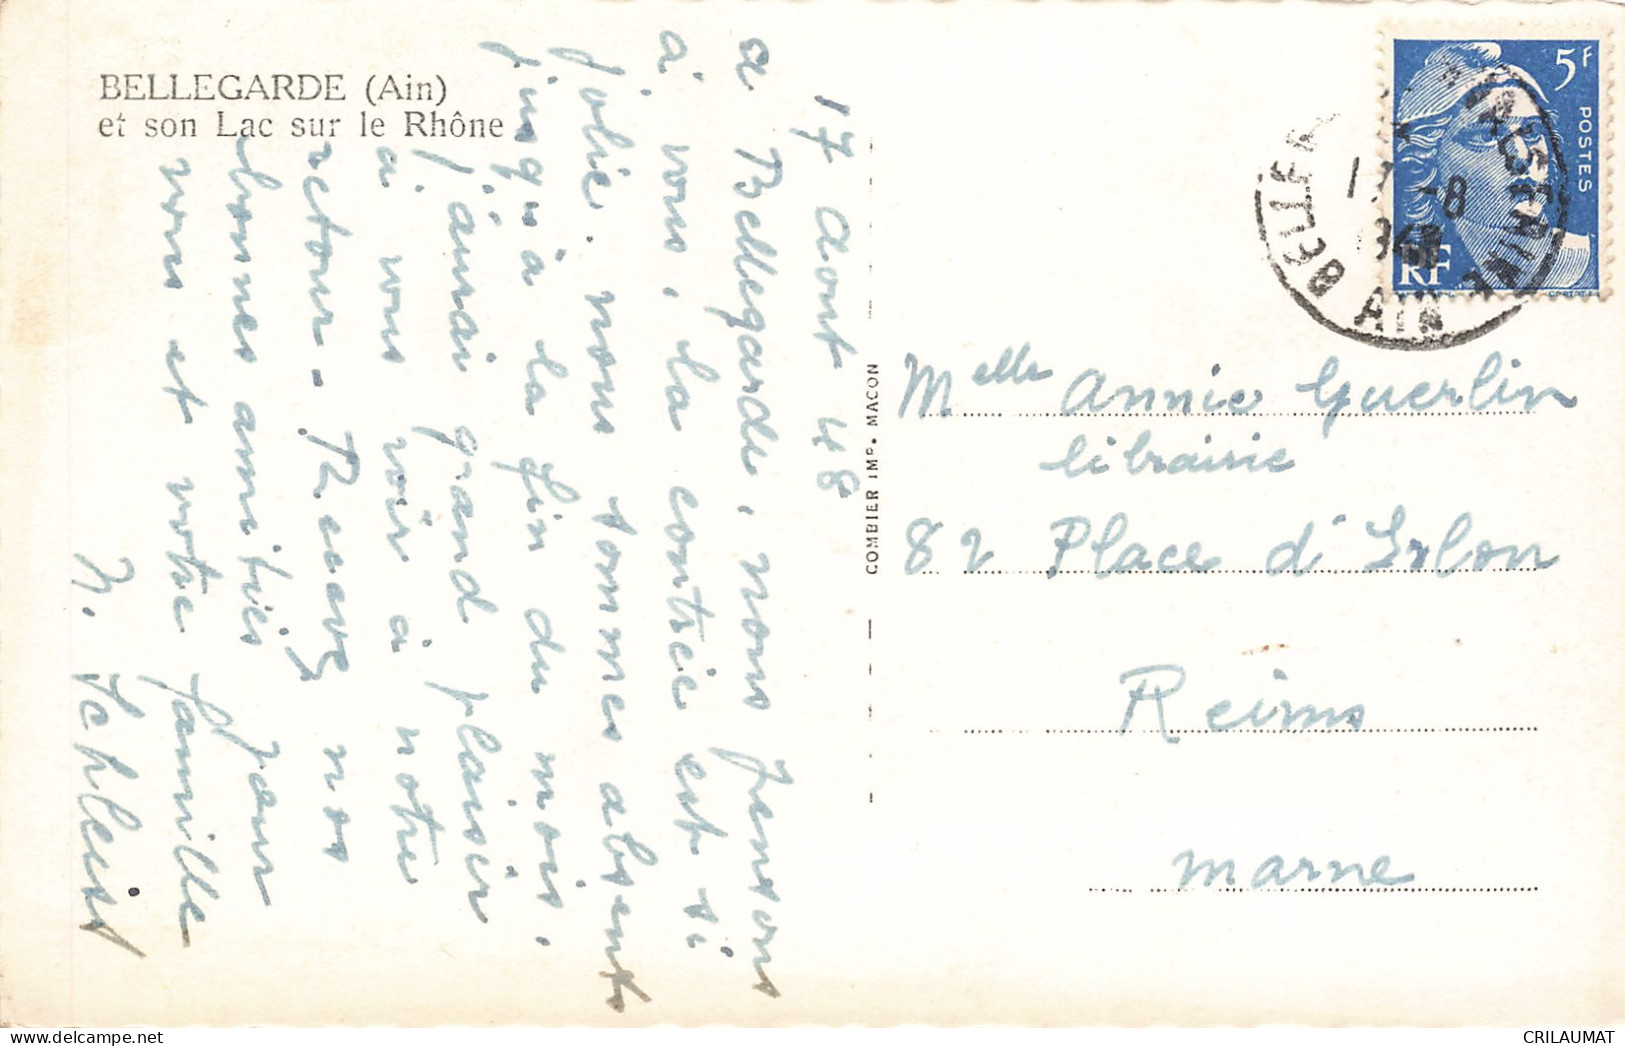 BELLEGARDE (Ain)
et son Lac sur le Rhône
17 Aout 48
a Bellegarde, nous pensons
à vous, la contrée est si
jolie. nous sommes absents
jusqu'à la fin du mois.
j'aurai grand plaisir
à vous voir à notre
retour. Recevez nos
bonnes amitiés pour
vous et votre famille
N. Schleist
COMBIER IMP. MACON
5F
POSTES
RF
17 -8
1948
AIN
Melle Annie Guerlin
librairie
82 Place d'Erlon
Reims
Marne
CRILAUMAT